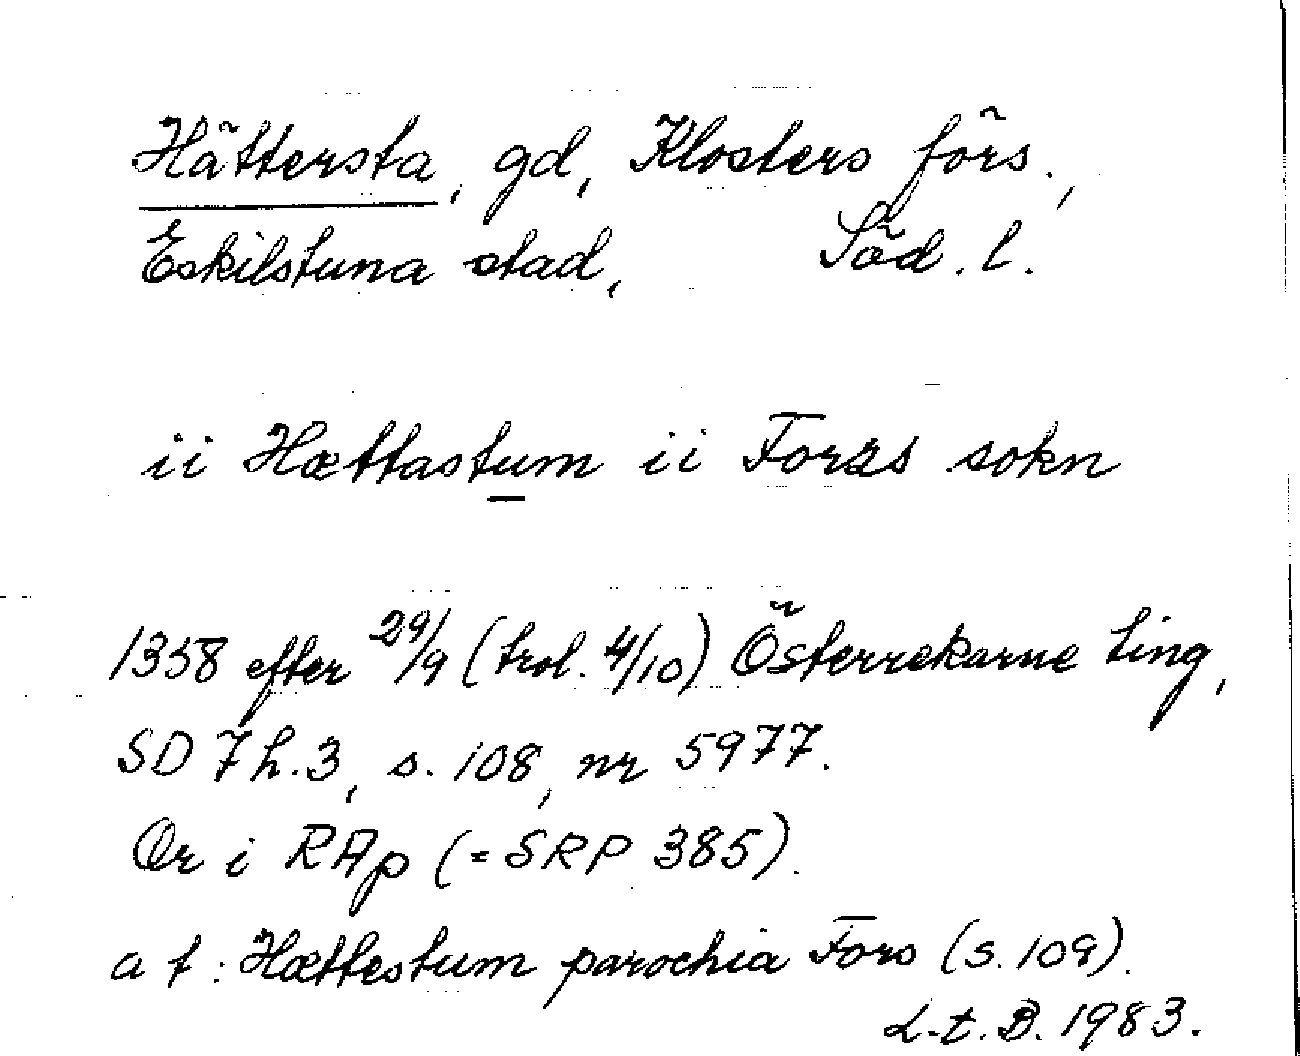 Hättersta, gd, Klosters förs.,
Eskilstuna stad, Söd. l.
ii Hættastum ii Forzs sokn
1358 efter 29/9 (trol. 4/10) Österrekarne ting,
SD 7 h.3, s. 108, nr 5977.
Or i RAp (= SRP 385).
a t: Hættestum parochia Fors (s. 109).
L.t.B. 1983.